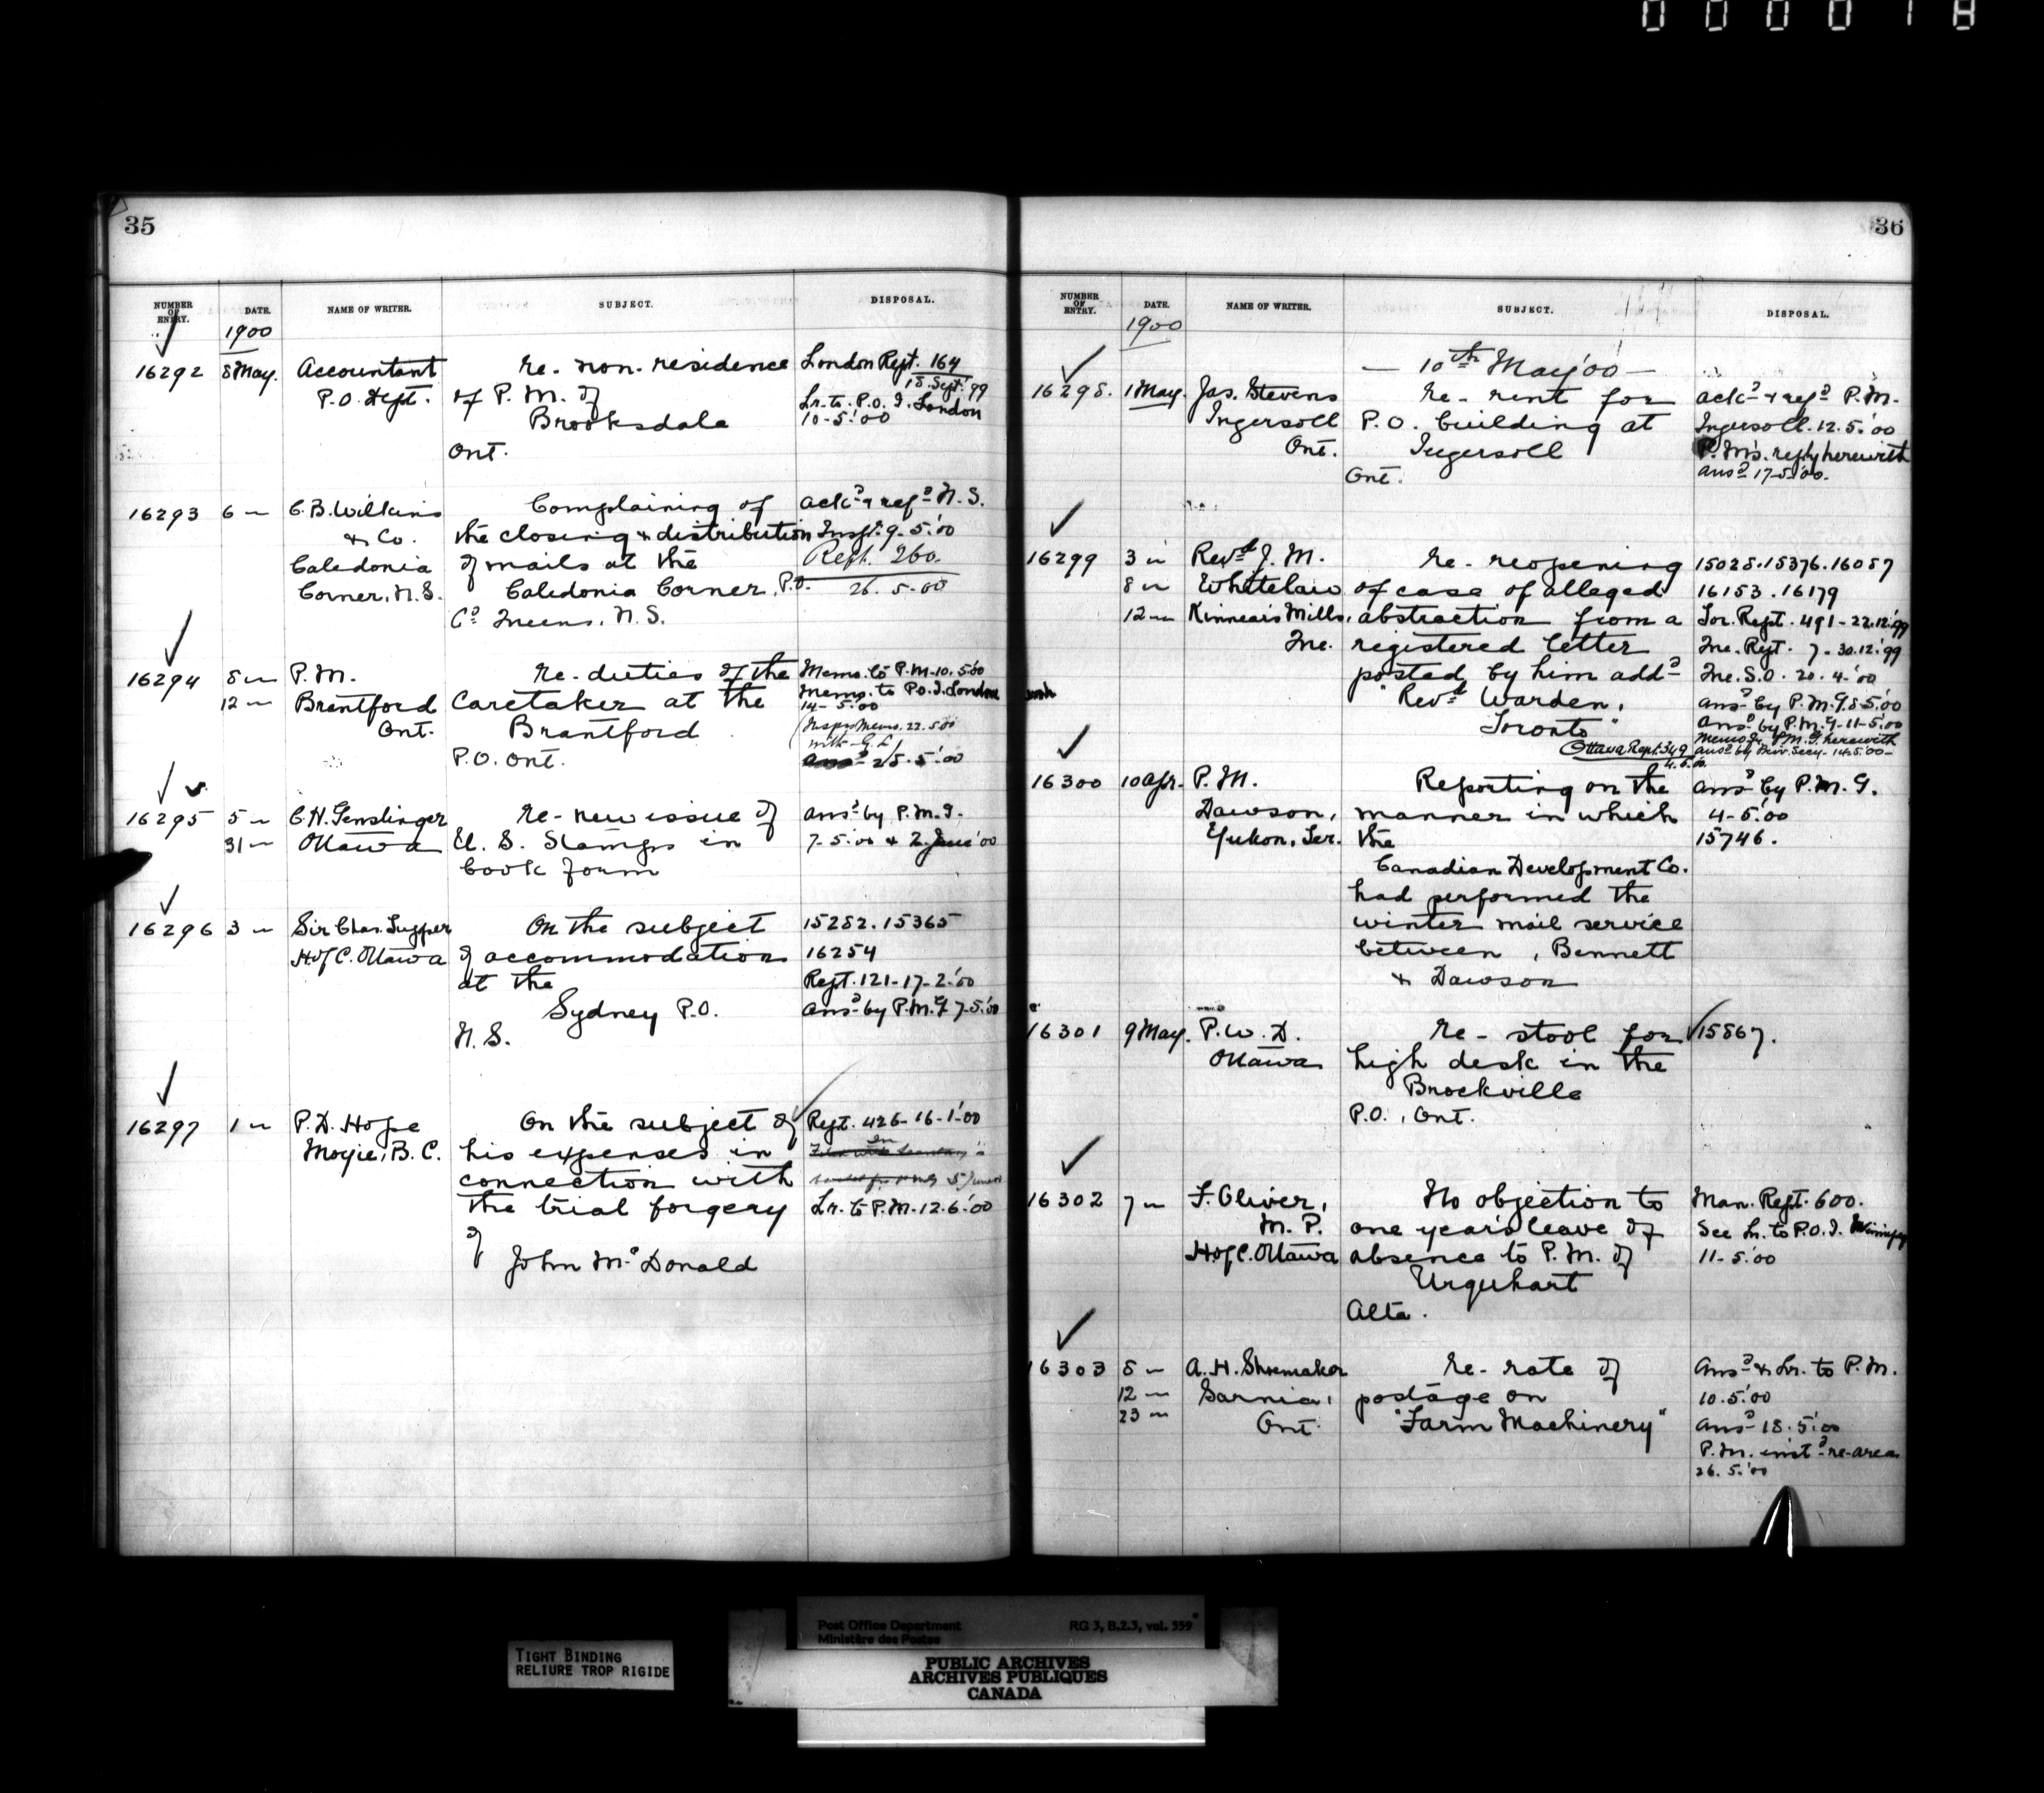 35
NUMBER OF ENTRY. DATE. NAME OF WRITER. SUBJECT. DISPOSAL.
1900
16292 8 May. Accountant re- non-residence London Rept. 164
P.O. Dept. of P.M. of 18. Sept. '99
Brooksdale Lr. to P.O.I. London
Ont. 10-5.'00
16293 6 〃 C.B. Wilkins Complaining of ack.d & ref.d N.S.
& Co. the closing & distribution Inspr. 9.5.'00
Caledonia of mails at the Rept. 260.
Corner, N.S. Caledonia Corner, P.O. 26.5.00
Co. Queens, N.S.
16294 8 〃 P.M. re-duties of the Memo. to P.M. 10.5.'00
12 〃 Brantford Caretaker at the Memo. to P.O.I. London
Ont. Brantford 14-5.'00
P.O. Ont. Inspr's Memo. 22.5.00
with
25.5.'00
16295 5 〃 C.H. Genslinger re-new issue of ans.d by P.M.G.
31 〃 Ottawa U.S. Stamps in 7-5.'00 & 2 June '00
book form
16296 3 〃 Sir Chas. Tupper On the subject 15282.15365
H of C. Ottawa of accommodation 16254
at the Rept. 121-17-2.'00
Sydney P.O. ans.d by P.M.G 7-5.'00
N.S.
16297 1 〃 P.D. Hope On the subject of Rept. 426-16-1-'00
Moyie, B.C. his expenses in
connection with
the trial forgery Lr. to P.M. 12.6.'00
of
John McDonald
36
NUMBER OF ENTRY. DATE. NAME OF WRITER. SUBJECT. DISPOSAL.
1900
— 10th May '00 —
16298. 1 May. Jas. Stevens re-rent for ack.d & ref.d P.M.
Ingersoll P.O. building at Ingersoll. 12.5.'00
Ont. Ingersoll P.M's. reply herewith
Ont. ans.d 17-5.'00.
16299 3 〃 Revd. J.M. re-reopening 15028.15376.16087
8 〃 Whitelaw of case of alleged 16153.16179
12 〃 Kinnear's Mills, abstraction from a Tor. Rept. 491-22.12.'99
Que. registered letter Que. Rept. 7-30.12.'99
posted by him add.d Que. S.O. 20.4-'00
"Revd. Warden, ans.d by P.M.G. 8.5.'00
Toronto" ans.d by P.M.G-11-5.'00
Memo by P.M.G. herewith
Ottawa Rept. 349 ans.d by Priv. Secy. 14.5.'00-
16300 10 Apr. P.M. Reporting on the ans.d by P.M.G.
Dawson, manner in which 4-5.'00
Yukon, Ter. the 15746.
Canadian Development Co.
had performed the
winter mail service
between, Bennett
& Dawson
16301 9 May. P.W.D. re-stool for 15867.
Ottawa high desk in the
Brockville
P.O., Ont.
16302 7 〃 F. Oliver, No objection to Man. Rept. 600.
M.P. one year's leave of See Lr. to P.O.I. Winnipeg
H of C. Ottawa absence to P.M. of 11-5.'00
Urquhart
Alta.
16303 8 〃 A.H. Shoemaker re-rate of Ans.d & Lr. to P.M.
12 〃 Sarnia, postage on 10.5.'00
23 〃 Ont. "Farm Machinery" ans.d 18.5.'00
P.M. inst.d re-area
26.5.'00
TIGHT BINDING
RELIURE TROP RIGIDE
Post Office Department RG 3, B.2.3, vol. 559
Ministère des Postes
PUBLIC ARCHIVES
ARCHIVES PUBLIQUES
CANADA